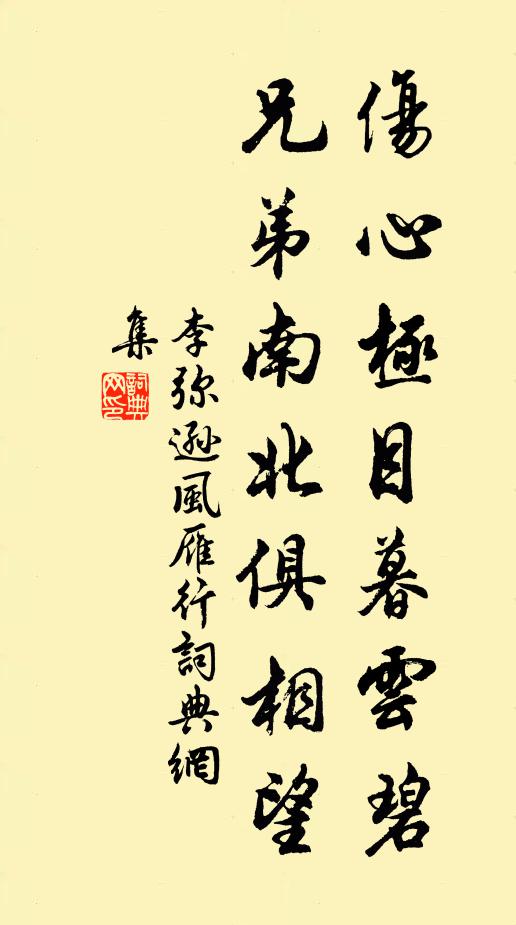 傷心極目暮雲碧
兄弟南北俱相望
李弥遜風雁行詞典網
集
詞典
网印